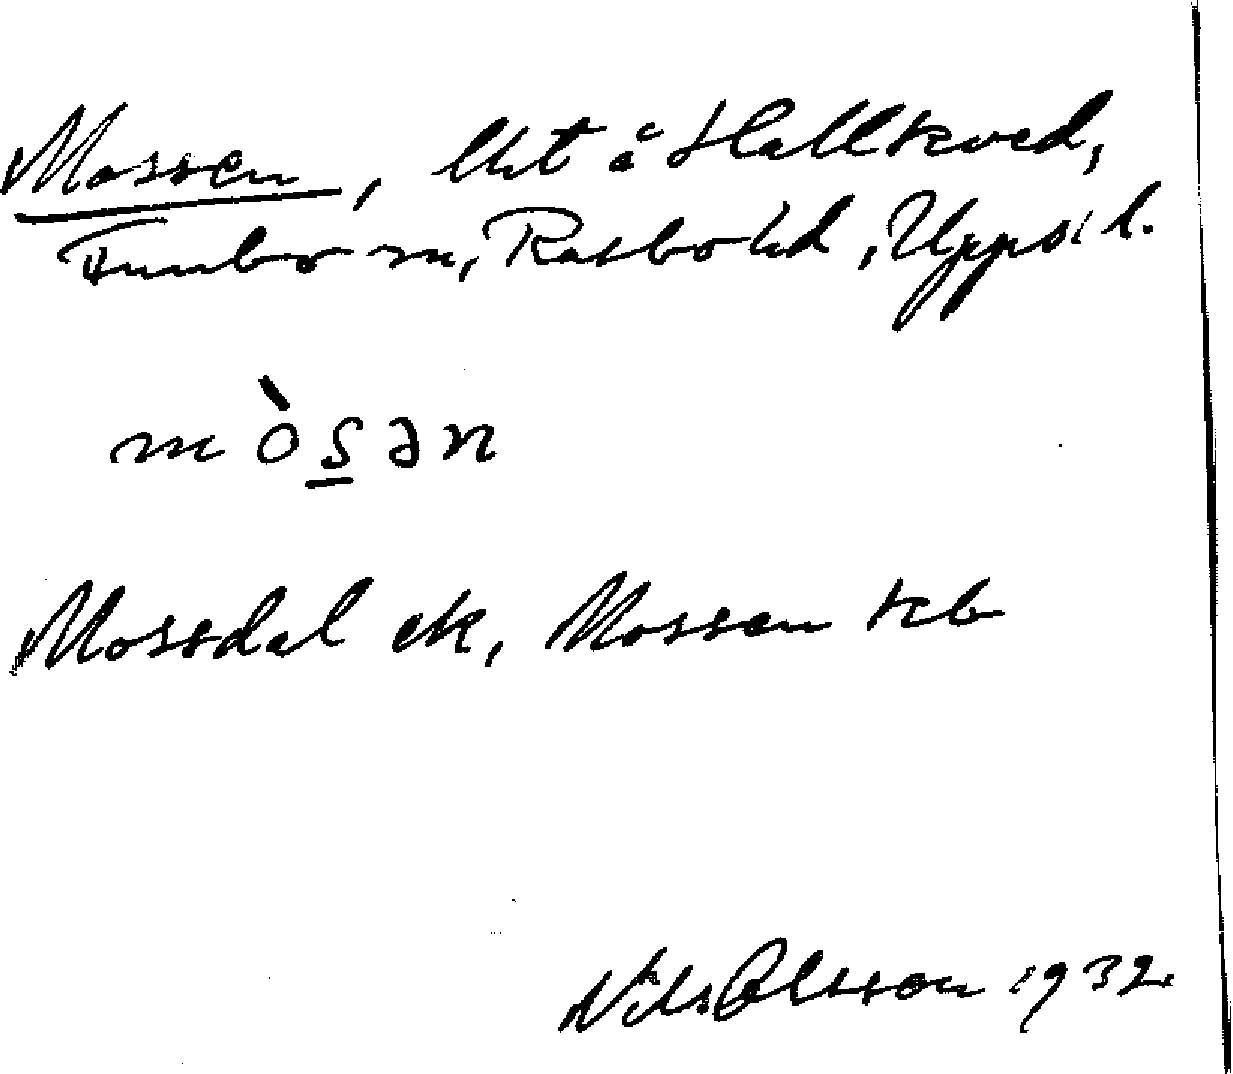 Mossen, lht å Hallkved,
Funbo sn, Rasbo hd, Upps. l.
mòs̲ən
Mossdal ek, Mossen kb
Nils Olsson 1932